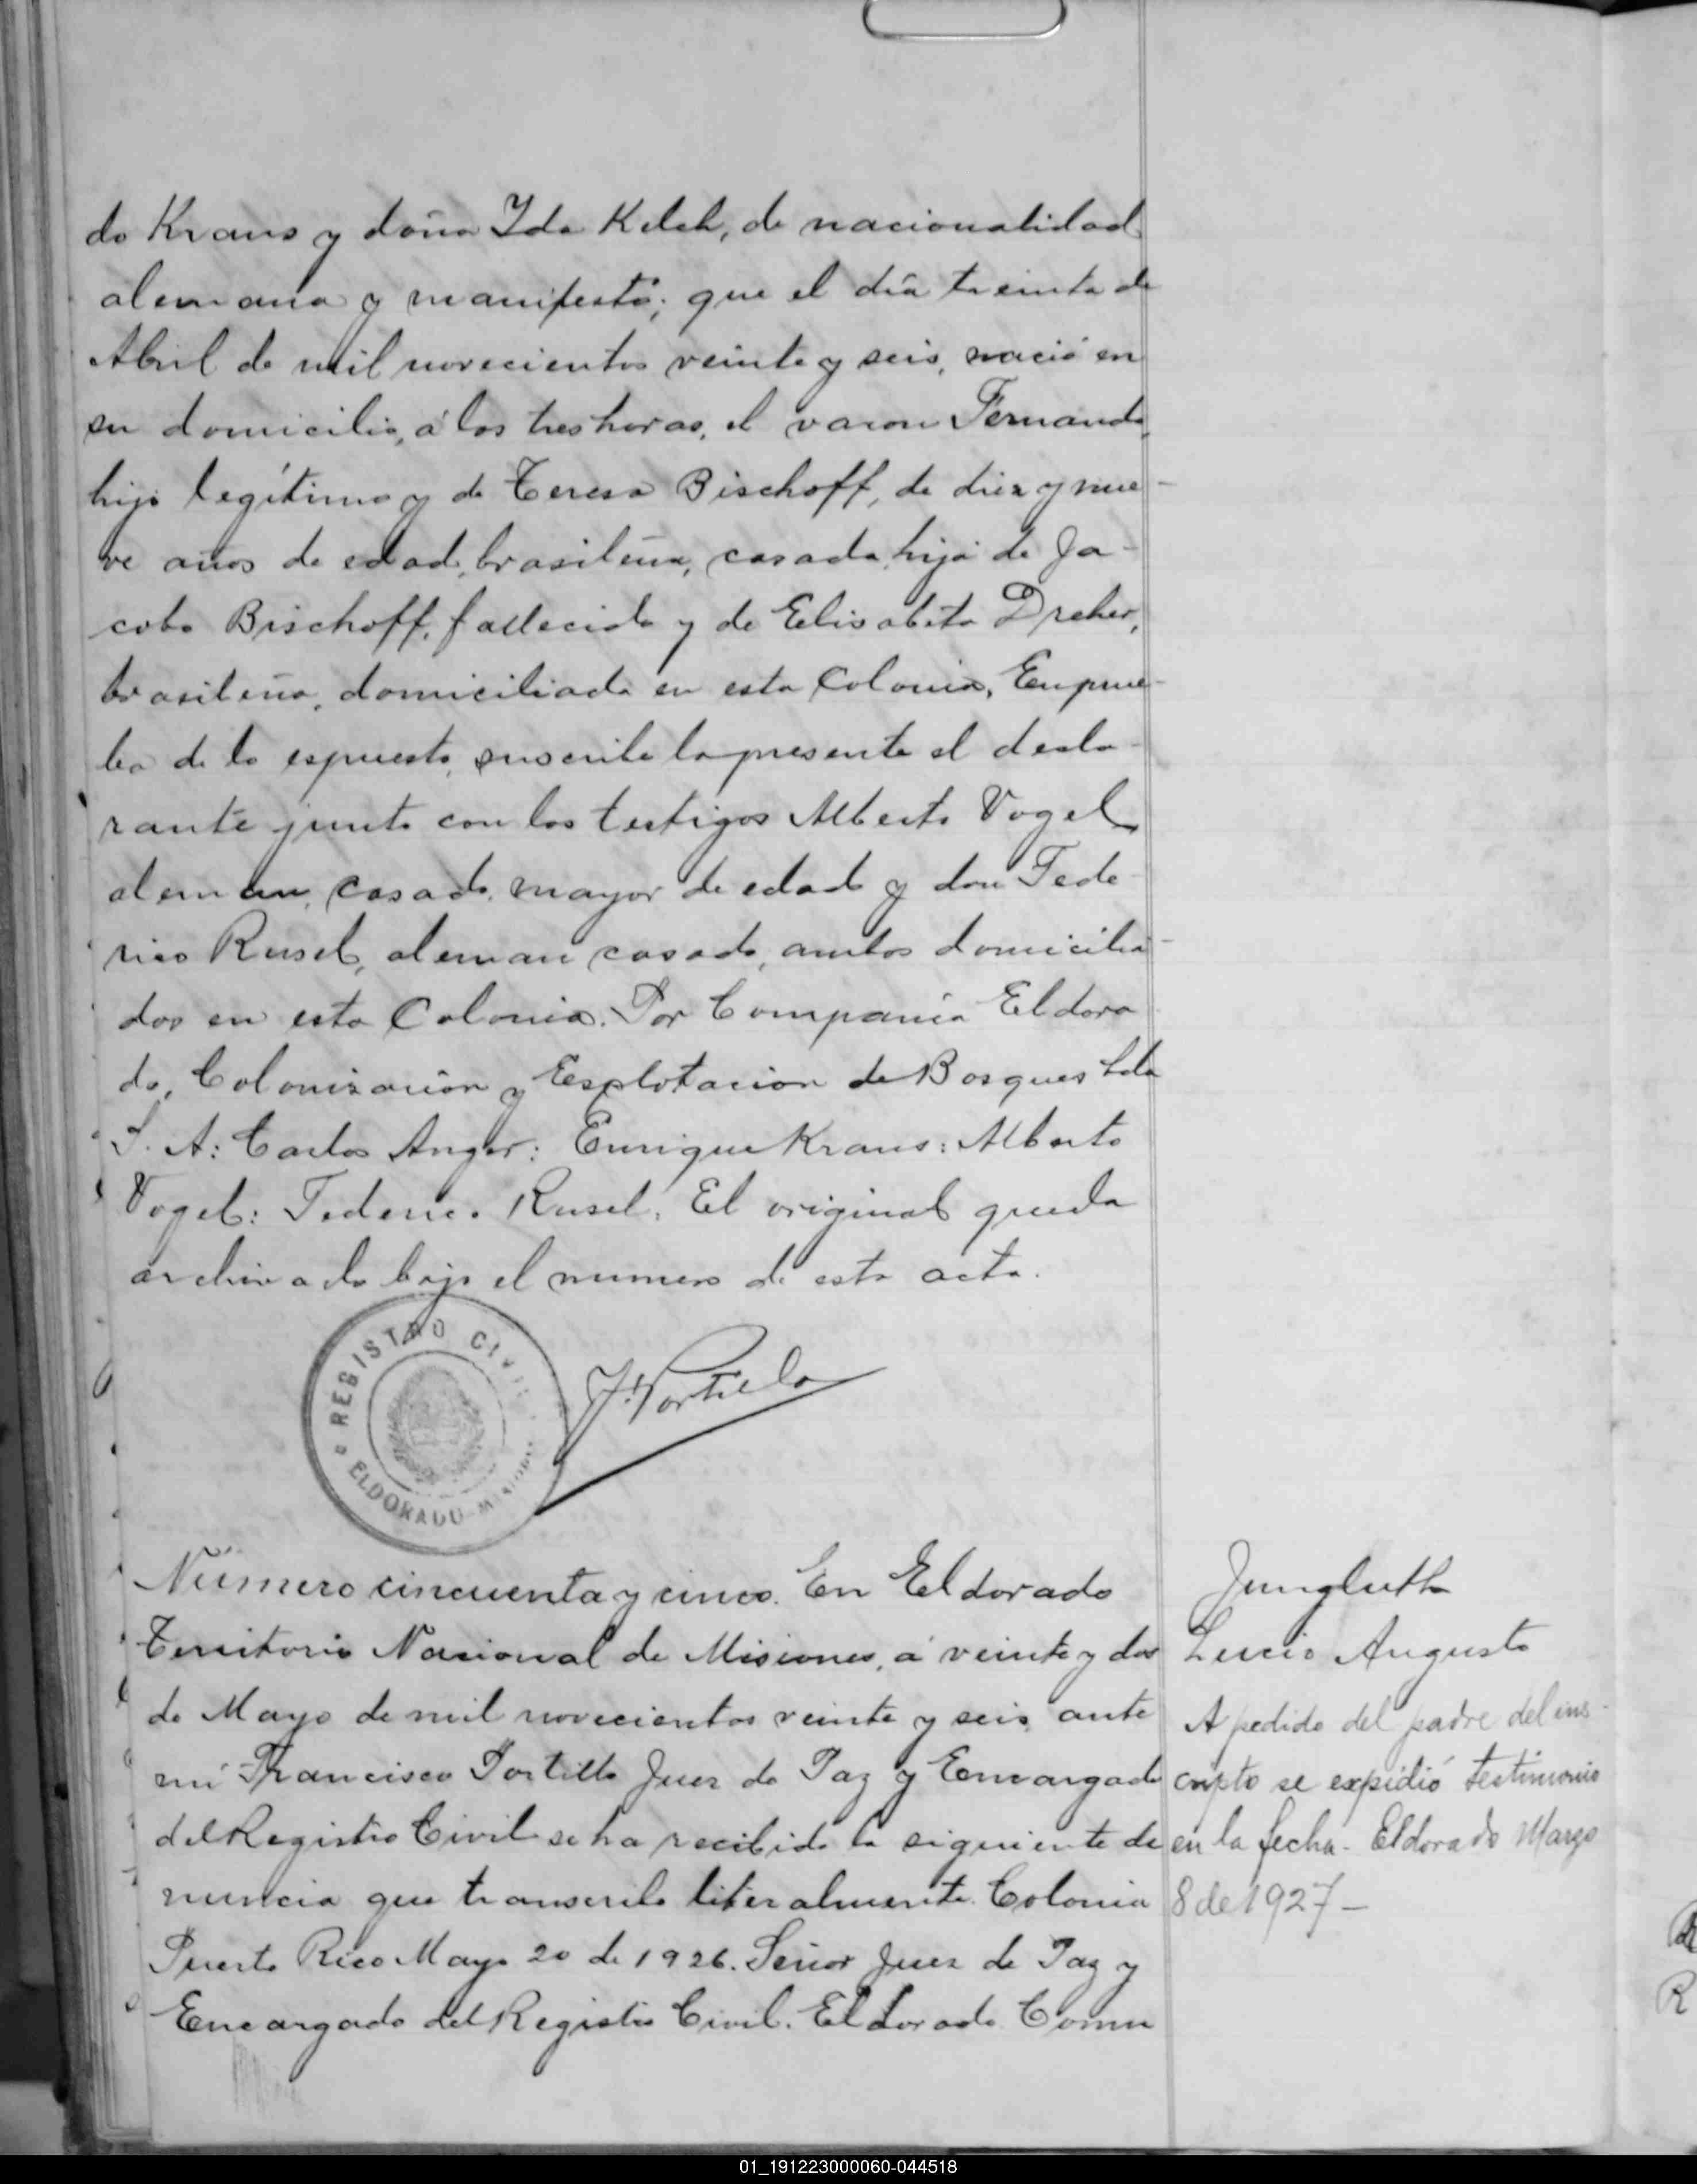 do Kraus y doña Ida Kelch, de nacionalidad
alemana y manifestó; que el día treinta de
Abril de mil novecientos veinte y seis, nació en
su domicilio, á las tres horas, el varon Fernando,
hijo legítimo y de Teresa Bischoff, de diez y nue-
ve años de edad, brasileña, casada, hija de Ja-
cobo Bischoff, fallecido y de Elisabeta Dreher,
brasileña, domiciliada en esta Colonia, En prue-
ba de lo espuesto, suscribe la presente el decla-
rante junto con los testigos Alberto Vogel
aleman, casado, mayor de edad y don Fede-
rico Rusel, aleman casado, ambos domicilia-
dos en esta Colonia. Por Compañia Eldora-
do, Colonización y Esplotacion de Bosques Lda
S. A: Carlos Anger: Enrique Kraus: Alberto
Vogel: Federico Rusel. El original queda
archivado bajo el numero de esta acta.
REGISTRO CIVIL
ELDORADO-MISIONES
F. Portillo
Número cincuenta y cinco. En Eldorado
Territorio Nacional de Misiones, á veinte y dos
de Mayo de mil novecientos veinte y seis, ante
mi Francisco Portillo Juez de Paz y Encargado
del Registro Civil se ha recibido la siguiente de
nuncia que transcribo literalmente. Colonia
Puerto Rico Mayo 20 de 1926. Señor Juez de Paz y
Encargado del Registro Civil. Eldorado. Comu
Jungluth
Lucio Augusto
A pedido del padre del ins-
cripto se expidió testimonio
en la fecha - Eldorado Marzo
8 de 1927 -
01_191223000060-044518